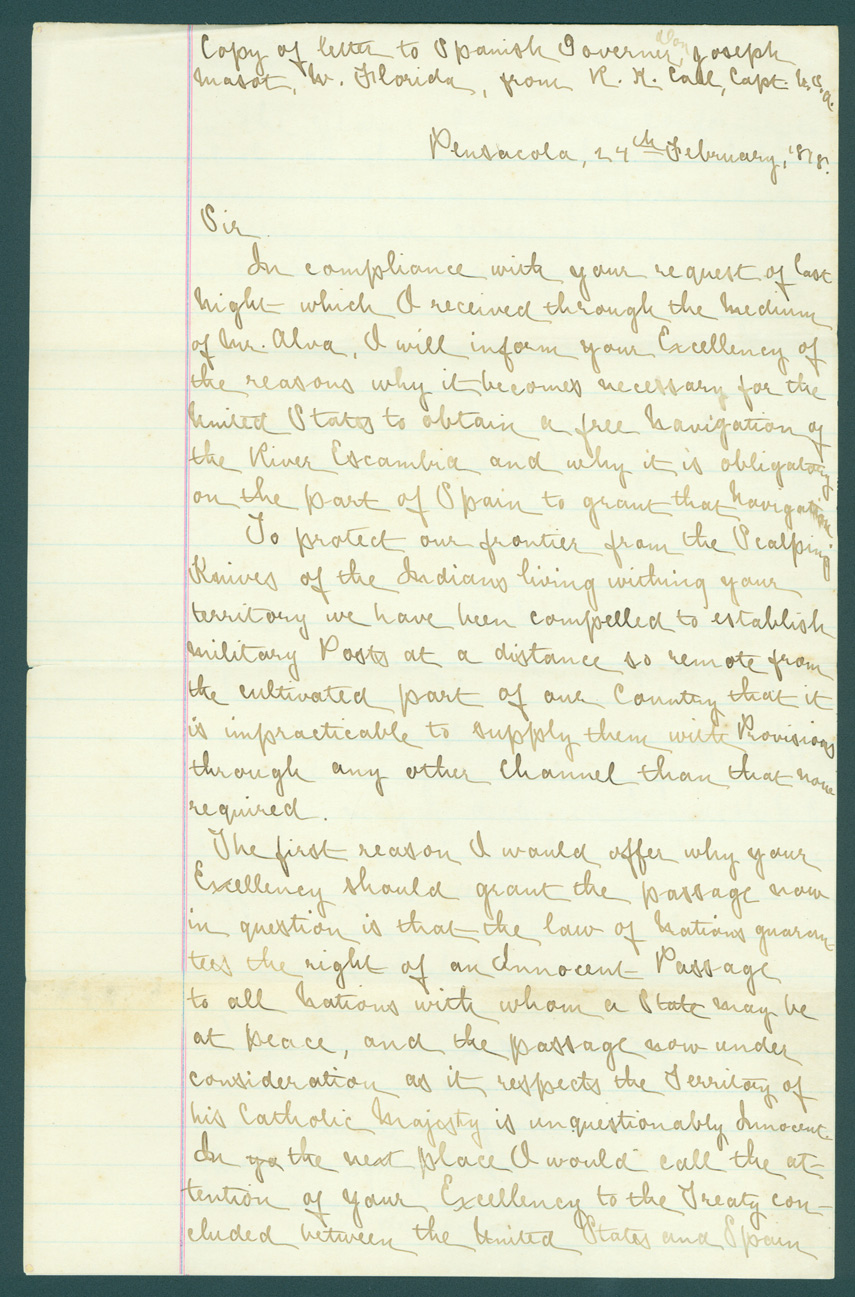 Don
Copy of letter to Spanish Governer, Joseph
Masot, W. Florida, from R. K. Call, Capt. U.S.A.
Pensacola, 24th February, 1818.
Sir
In compliance with your request of last
Night which I received through the Medium
of Mr. Alva, I will inform your Excellency of
the reasons why it becomes necessary for the
United States to obtain a free Navigation of
the River Escambia and why it is obligatory
on the part of Spain to grant that Navigation
To protect our frontier from the Scalping
Knives of the Indians living withing your
territory we have been compelled to establish
Military Posts at a distance so remote from
the cultivated part of our Country that it
is impracticable to supply them with Provisions
through any other Channel than that now
required.
The first reason I would offer why your
Excellency should grant the passage now
in question is that the law of Nations guaran-
tees the right of an Innocent Passage
to all Nations with whom a State may be
at peace, and the passage now under
consideration as it respects the Territory of
his Catholic Majesty is unquestionably Innocent.
In yo the next place I would call the at-
tention of your Excellency to the Treaty con-
cluded between the United States and Spain